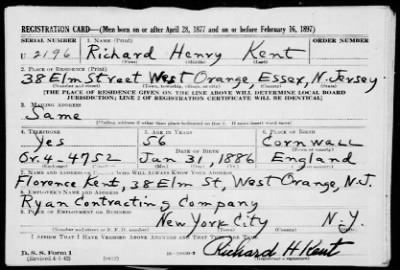 REGISTRATION CARD—(Men born on or after April 28, 1877 and on or before February 16, 1897)
SERIAL NUMBER 1. NAME (Print) ORDER NUMBER
U 2196 Richard Henry Kent
(First) (Middle) (Last)
2. PLACE OF RESIDENCE (Print)
38 Elm Street West Orange Essex, N. Jersey
(Number and street) (Town, township, village, or city) (County) (State)
[THE PLACE OF RESIDENCE GIVEN ON THE LINE ABOVE WILL DETERMINE LOCAL BOARD
JURISDICTION; LINE 2 OF REGISTRATION CERTIFICATE WILL BE IDENTICAL]
3. MAILING ADDRESS
Same
(Mailing address if other than place indicated on line 2. If same insert word same)
4. TELEPHONE 5. AGE IN YEARS 6. PLACE OF BIRTH
Yes 56 Cornwall
DATE OF BIRTH (Town or county)
Or. 4-4752 Jan 31, 1886 England
(Exchange) (Number) (Mo.) (Day) (Yr.) (State or country)
7. NAME AND ADDRESS OF WHO WILL ALWAYS KNOW YOUR ADDRESS
Florence Kent, 38 Elm St, West Orange, N.J.
8. EMPLOYER'S NAME AND ADDRESS
Ryan Contracting Company
9. PLACE OF EMPLOYMENT OR BUSINESS
New York City N.Y.
(Number and street or R. F. D. number) (Town) (County) (State)
I AFFIRM THAT I HAVE VERIFIED ABOVE ANSWERS AND THAT THEY ARE TRUE.
D. S. S. Form 1
(Revised 4-1-42) Richard H Kent